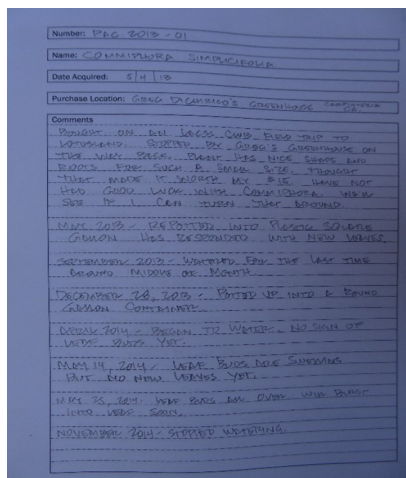 Number: PAC 2013 - 01
Name: COMMIPHORA SIMPLICIFOLIA
Date Acquired: 5/4/13
Purchase Location: GREG DICHIRICO'S GREENHOUSE
Comments
BOUGHT ON AN LACSS CLUB FIELD TRIP TO
LOTUSLAND. STOPPED BY GREG'S GREENHOUSE ON
THE WAY BACK. PLANT HAS NICE SHAPE AND
ROOTS FOR SUCH A SMALL SIZE. THOUGHT
THAT MADE IT WORTH MY $15. HAVE NOT
HAD GOOD LUCK WITH COMMIPHORA. WILL
SEE IF I CAN TURN THAT AROUND.
MAY 2013 - REPOTTED INTO PLASTIC SQUARE
GALLON. HAS RESPONDED WITH NEW LEAVES.
SEPTEMBER 2013 - WATERED FOR THE LAST TIME
AROUND MIDDLE OF MONTH.
DECEMBER 28, 2013 - POTTED UP INTO A ROUND
GALLON CONTAINER.
APRIL 2014 - BEGAN TO WATER. NO SIGN OF
LEAF BUDS YET.
MAY 14, 2014 - LEAF BUDS ARE SWELLING
BUT NO NEW LEAVES YET.
MAY 25, 2014 LEAF BUDS ALL OVER. WILL BURST
INTO LEAF SOON.
NOVEMBER 2014 - STOPPED WATERING.